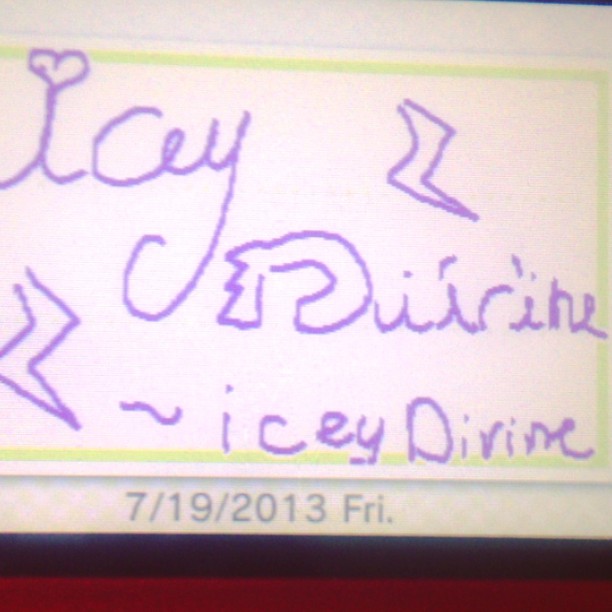 icey
Divine
~ icey Divine
7/19/2013 Fri.